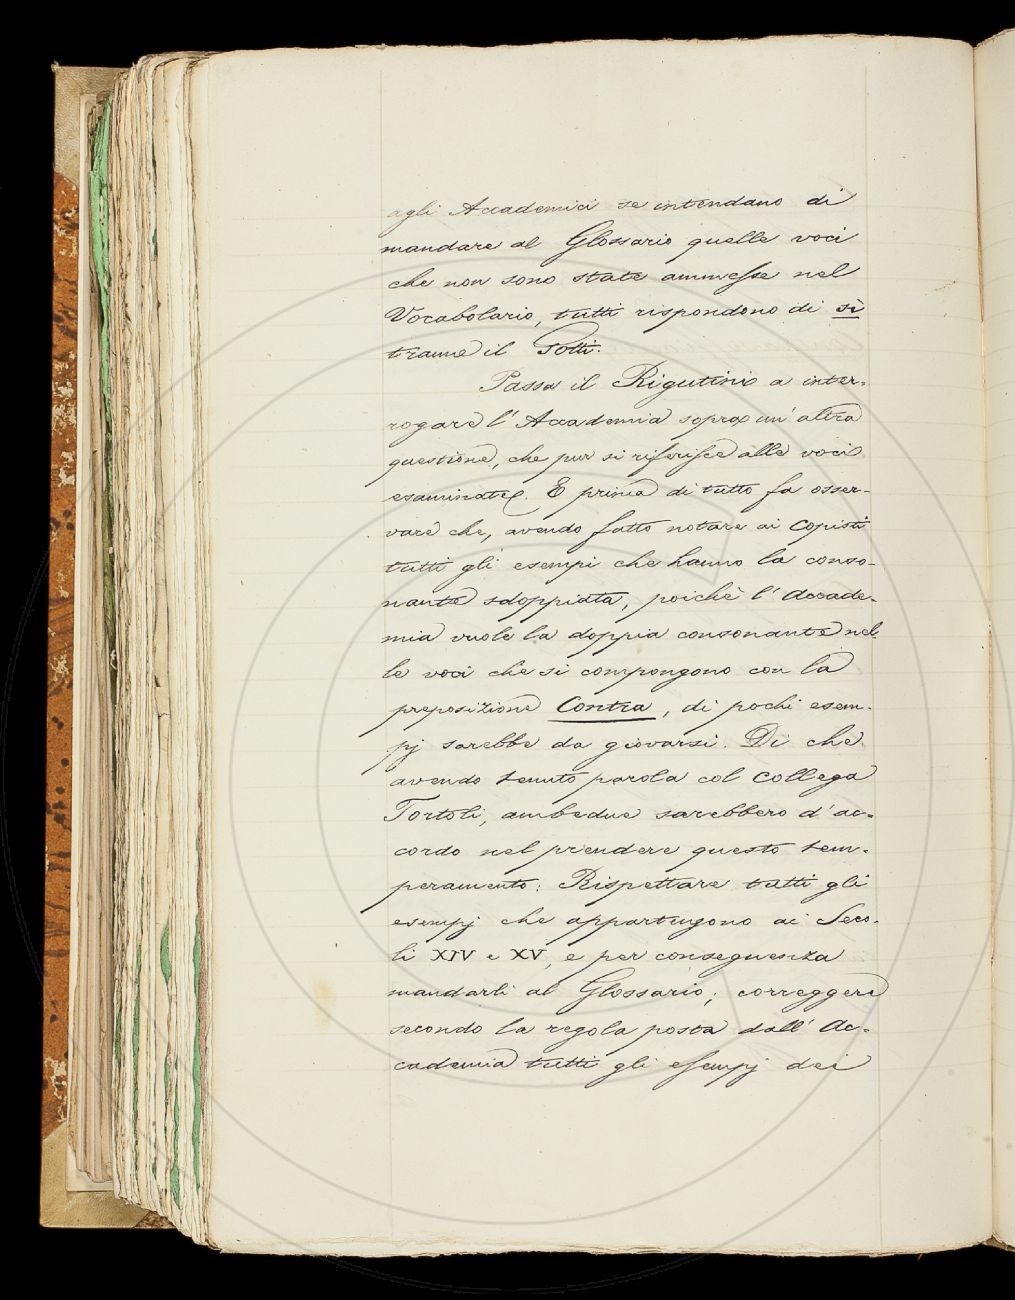 agli Accademici se intendano di
mandare al Glossario quelle voci
che non sono state ammesse nel
Vocabolario, tutti rispondono di sì
tranne il Gotti.
Passa il Rigutini a inter-
rogare l'Accademia sopra un'altra
questione, che pur si riferisce alle voci
esaminate. E prima di tutto fa osser-
vare che, avendo fatto notare ai Copisti
tutti gli esempi che hanno la conso-
nante sdoppiata, poichè l'Accade-
mia vuole la doppia consonante nel-
le voci che si compongono con la
preposizione Contra, di pochi esem-
pj sarebbe da giovarsi. Di che
avendo tenuto parola col Collega
Tortoli, ambedue sarebbero d'ac-
cordo nel prendere questo tem-
peramento: Rispettare tutti gli
esempj che appartengono ai Seco-
li XIV e XV, e per conseguenza
mandarli al Glossario; correggere
secondo la regola posta dall'Ac-
cademia tutti gli esempj dei